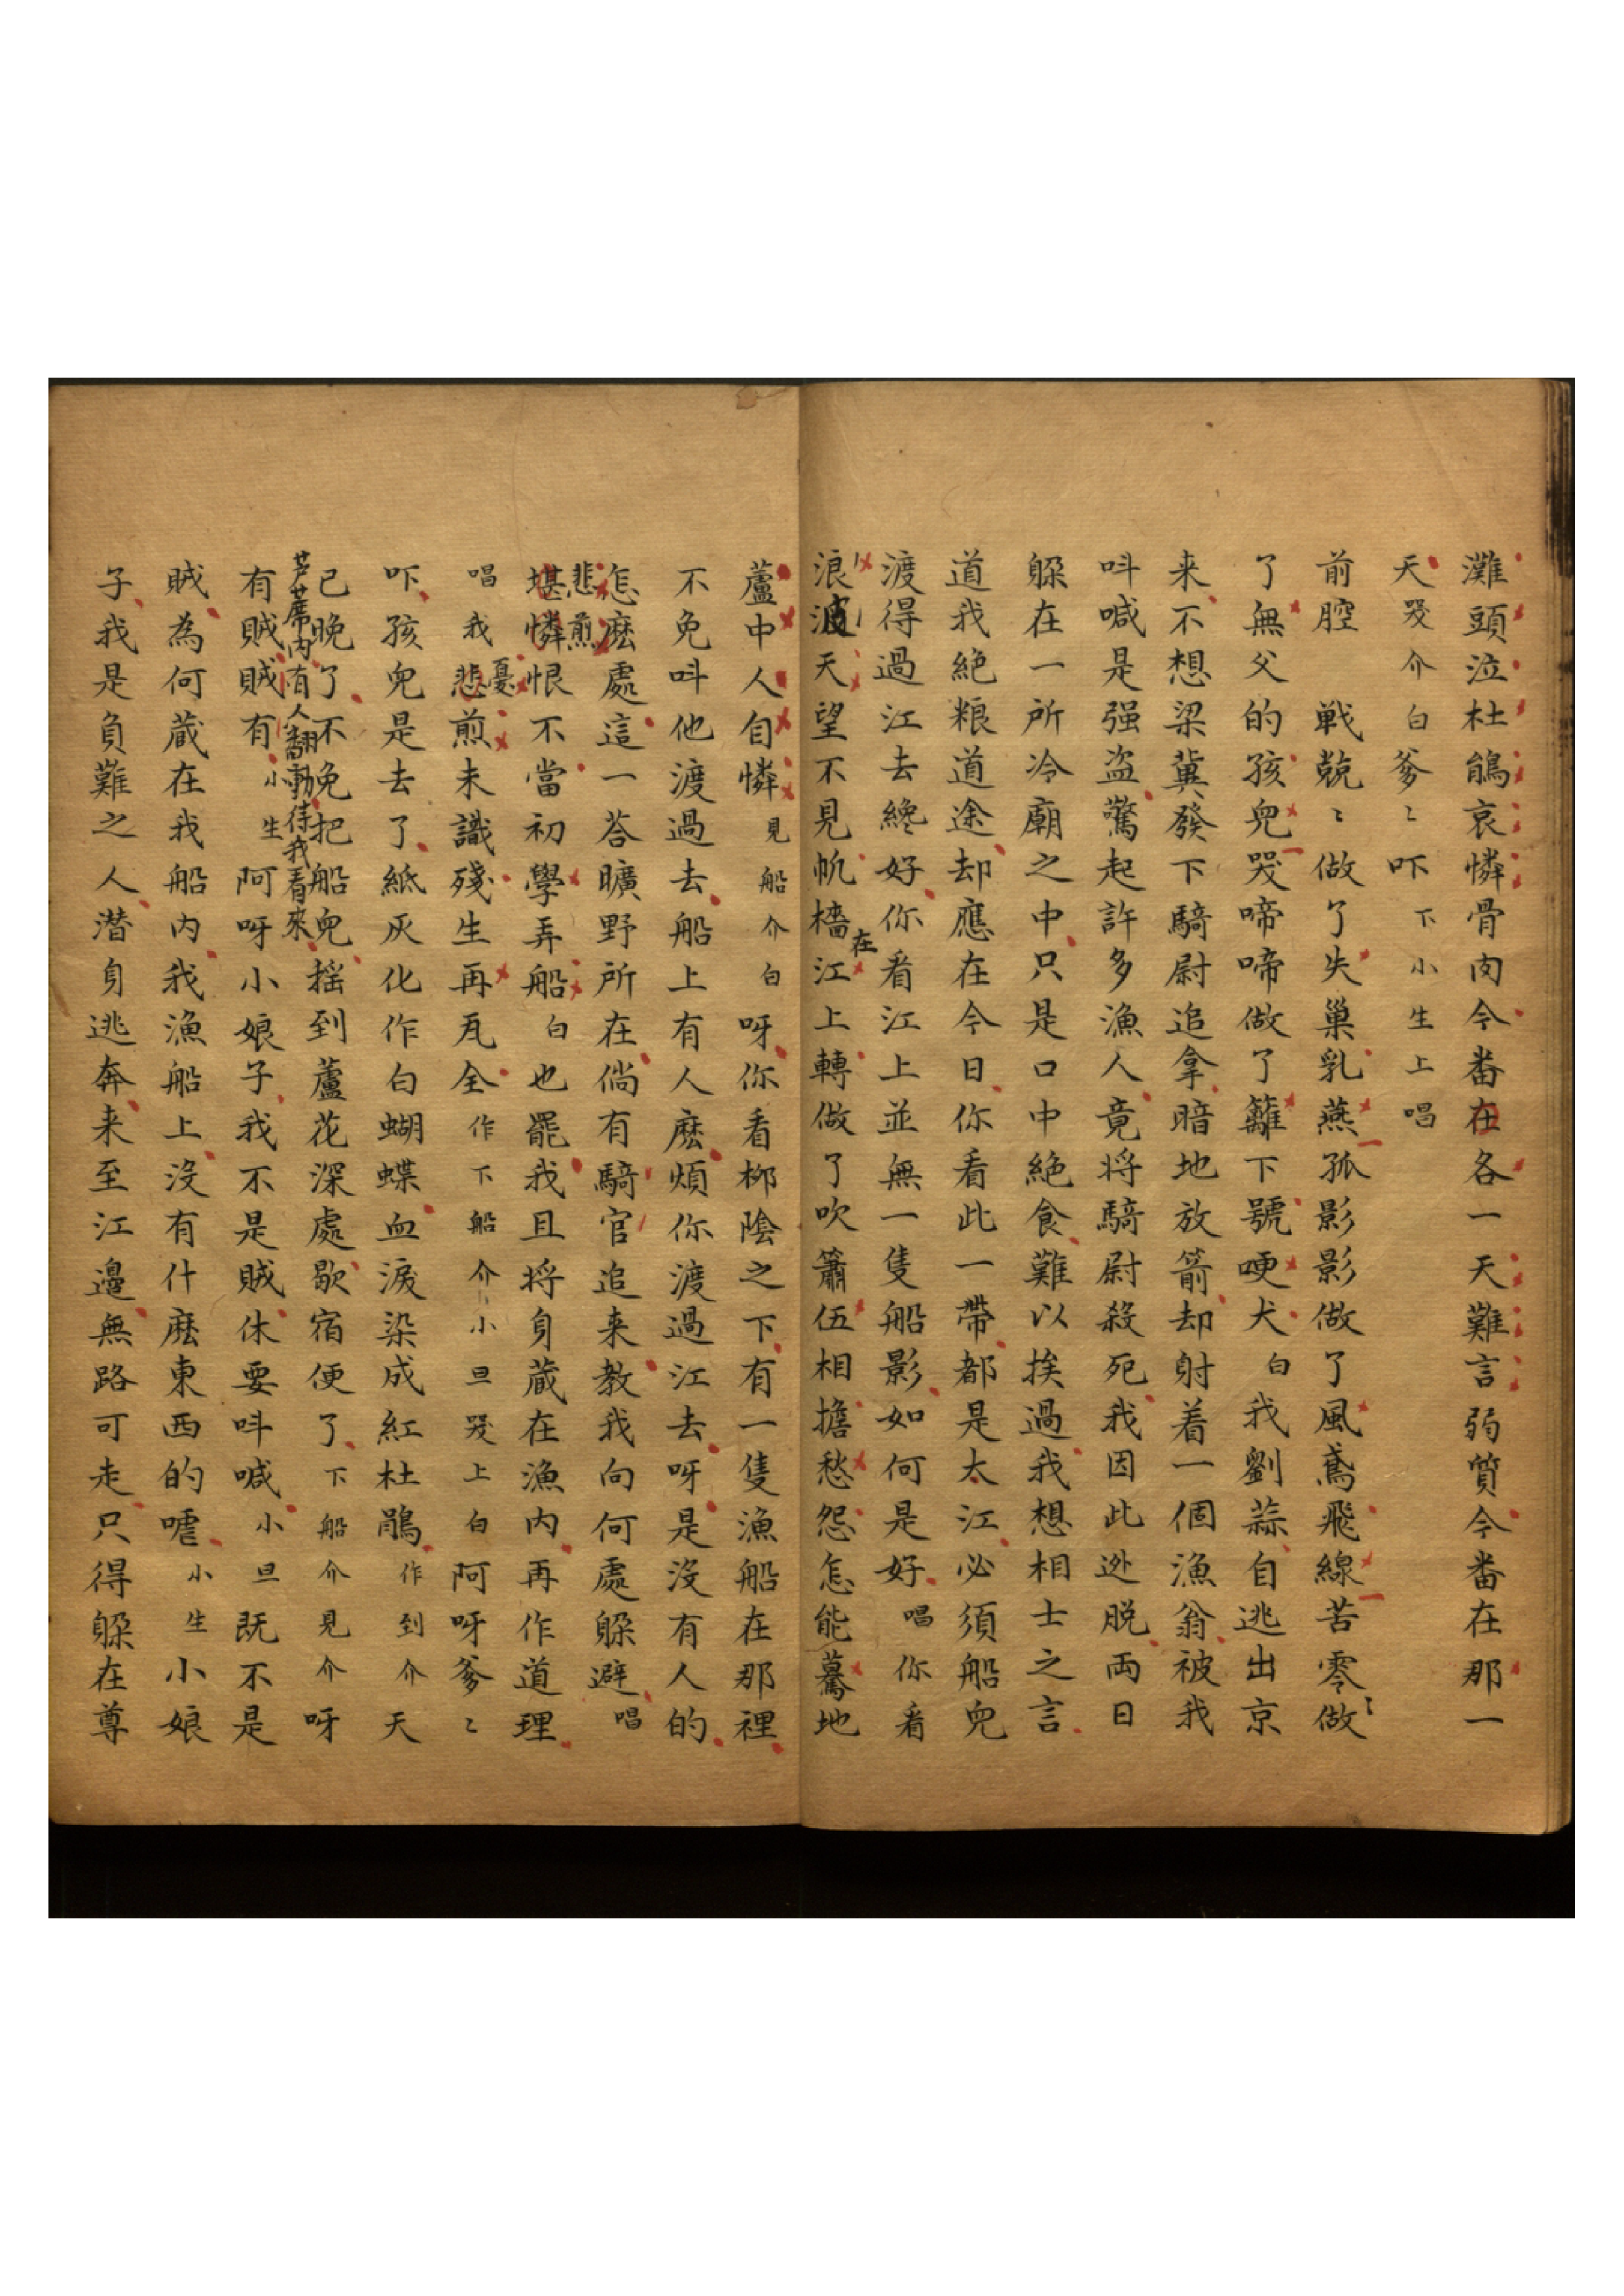 灘頭泣杜鵑哀憐骨肉今番在各一天難言弱質今番在那一
天哭介白爹〻吓下小生上唱
前腔　戰兢〻做了失巢乳燕孤影影做了風鳶飛線苦零〻做
了無父的孩兒哭啼啼做了籬下號哽犬白我劉蒜自逃出京
来不想梁冀發下騎尉追拿暗地放箭却射着一個漁翁被我
呌喊是强盗驚起許多漁人竟将騎尉殺死我因此迯脱両日
躱在一所冷廟之中只是口中絶食難以挨過我想相士之言
道我絕粮道途却應在今日你看此一帶都是大江必須船兒
渡得過江去纔好你看江上並無一隻船影如何是好唱你看
浪波天望不見帆檣在江上轉做了吹簫伍相擔愁怨怎能驀地
蘆中人自憐見船介白呀你看柳陰之下有一隻漁船在那裡
不免呌他渡過去船上有人麽煩你渡過江去呀是沒有人的
怎麽處這一荅曠野所在倘有騎官追来教我向何處躱避唱
悲煎
堪憐恨不當初學弄船白也罷我且将身藏在漁内再作道理
唱我悲憂煎未識殘生再瓦全作下船介小旦哭上白阿呀爹〻
吓孩兒是去了紙灰化作白蝴蝶血淚染成紅杜鵑作到介天
已晚了不免把船兒摇到蘆花深處歇宿便了下船介見介呀
芦蓆内有人翻動待我看來
有賊賊有小生阿呀小娘子我不是賊休要呌喊小旦既不是
賊為何藏在我船内我漁船上沒有什麽東西的嘘小生小娘
子我是負難之人潜身逃奔来至江邊無路可走只得躱在尊